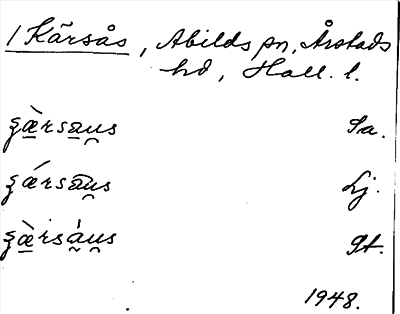 1 Kärsås, Abilds sn, Årstads
hd, Hall. l.
ʒæ̀rsa̲u̯s Sa.
ʒǽrsa̲u̯s Lj.
ʒæ̀rsàu̯s Gt.
1948.